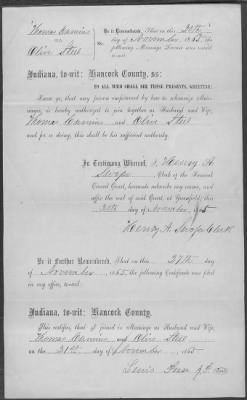 Thomas
to
Olive Steel
Be it Remembered, That on this 20th
day of November 1865 the
following Marriage License was
issued:
SS:
Indiana, to-wit: Hancock County, ss:
TO ALL WHO SHALL SEE THESE PRESENTS, GREETING:
Know ye, that any person empowered by law to solemnize Marriage,
is hereby authorized to join together as Husband and Wife,
Thomas and Olive Steel
and for so doing, this shall be his sufficient authority.
In Testimony Whereof, I, Henry A.
Swope Clerk of the Hancock
Circuit Court, hereunto subscribe my name, and
affix the seal of said Court, at Greenfield, this
20th day of November 1865
Henry A. Swope Clerk
Be it Further Remembered, That on this 27th
day of November 1865 the following Certificate was filed
in my office, to-wit:
Indiana, to-wit: Hancock County.
This certifies, that I joined in Marriage as Husband and Wife,
Thomas and Olive Steel
on the 21st day of November 1865
Lewis